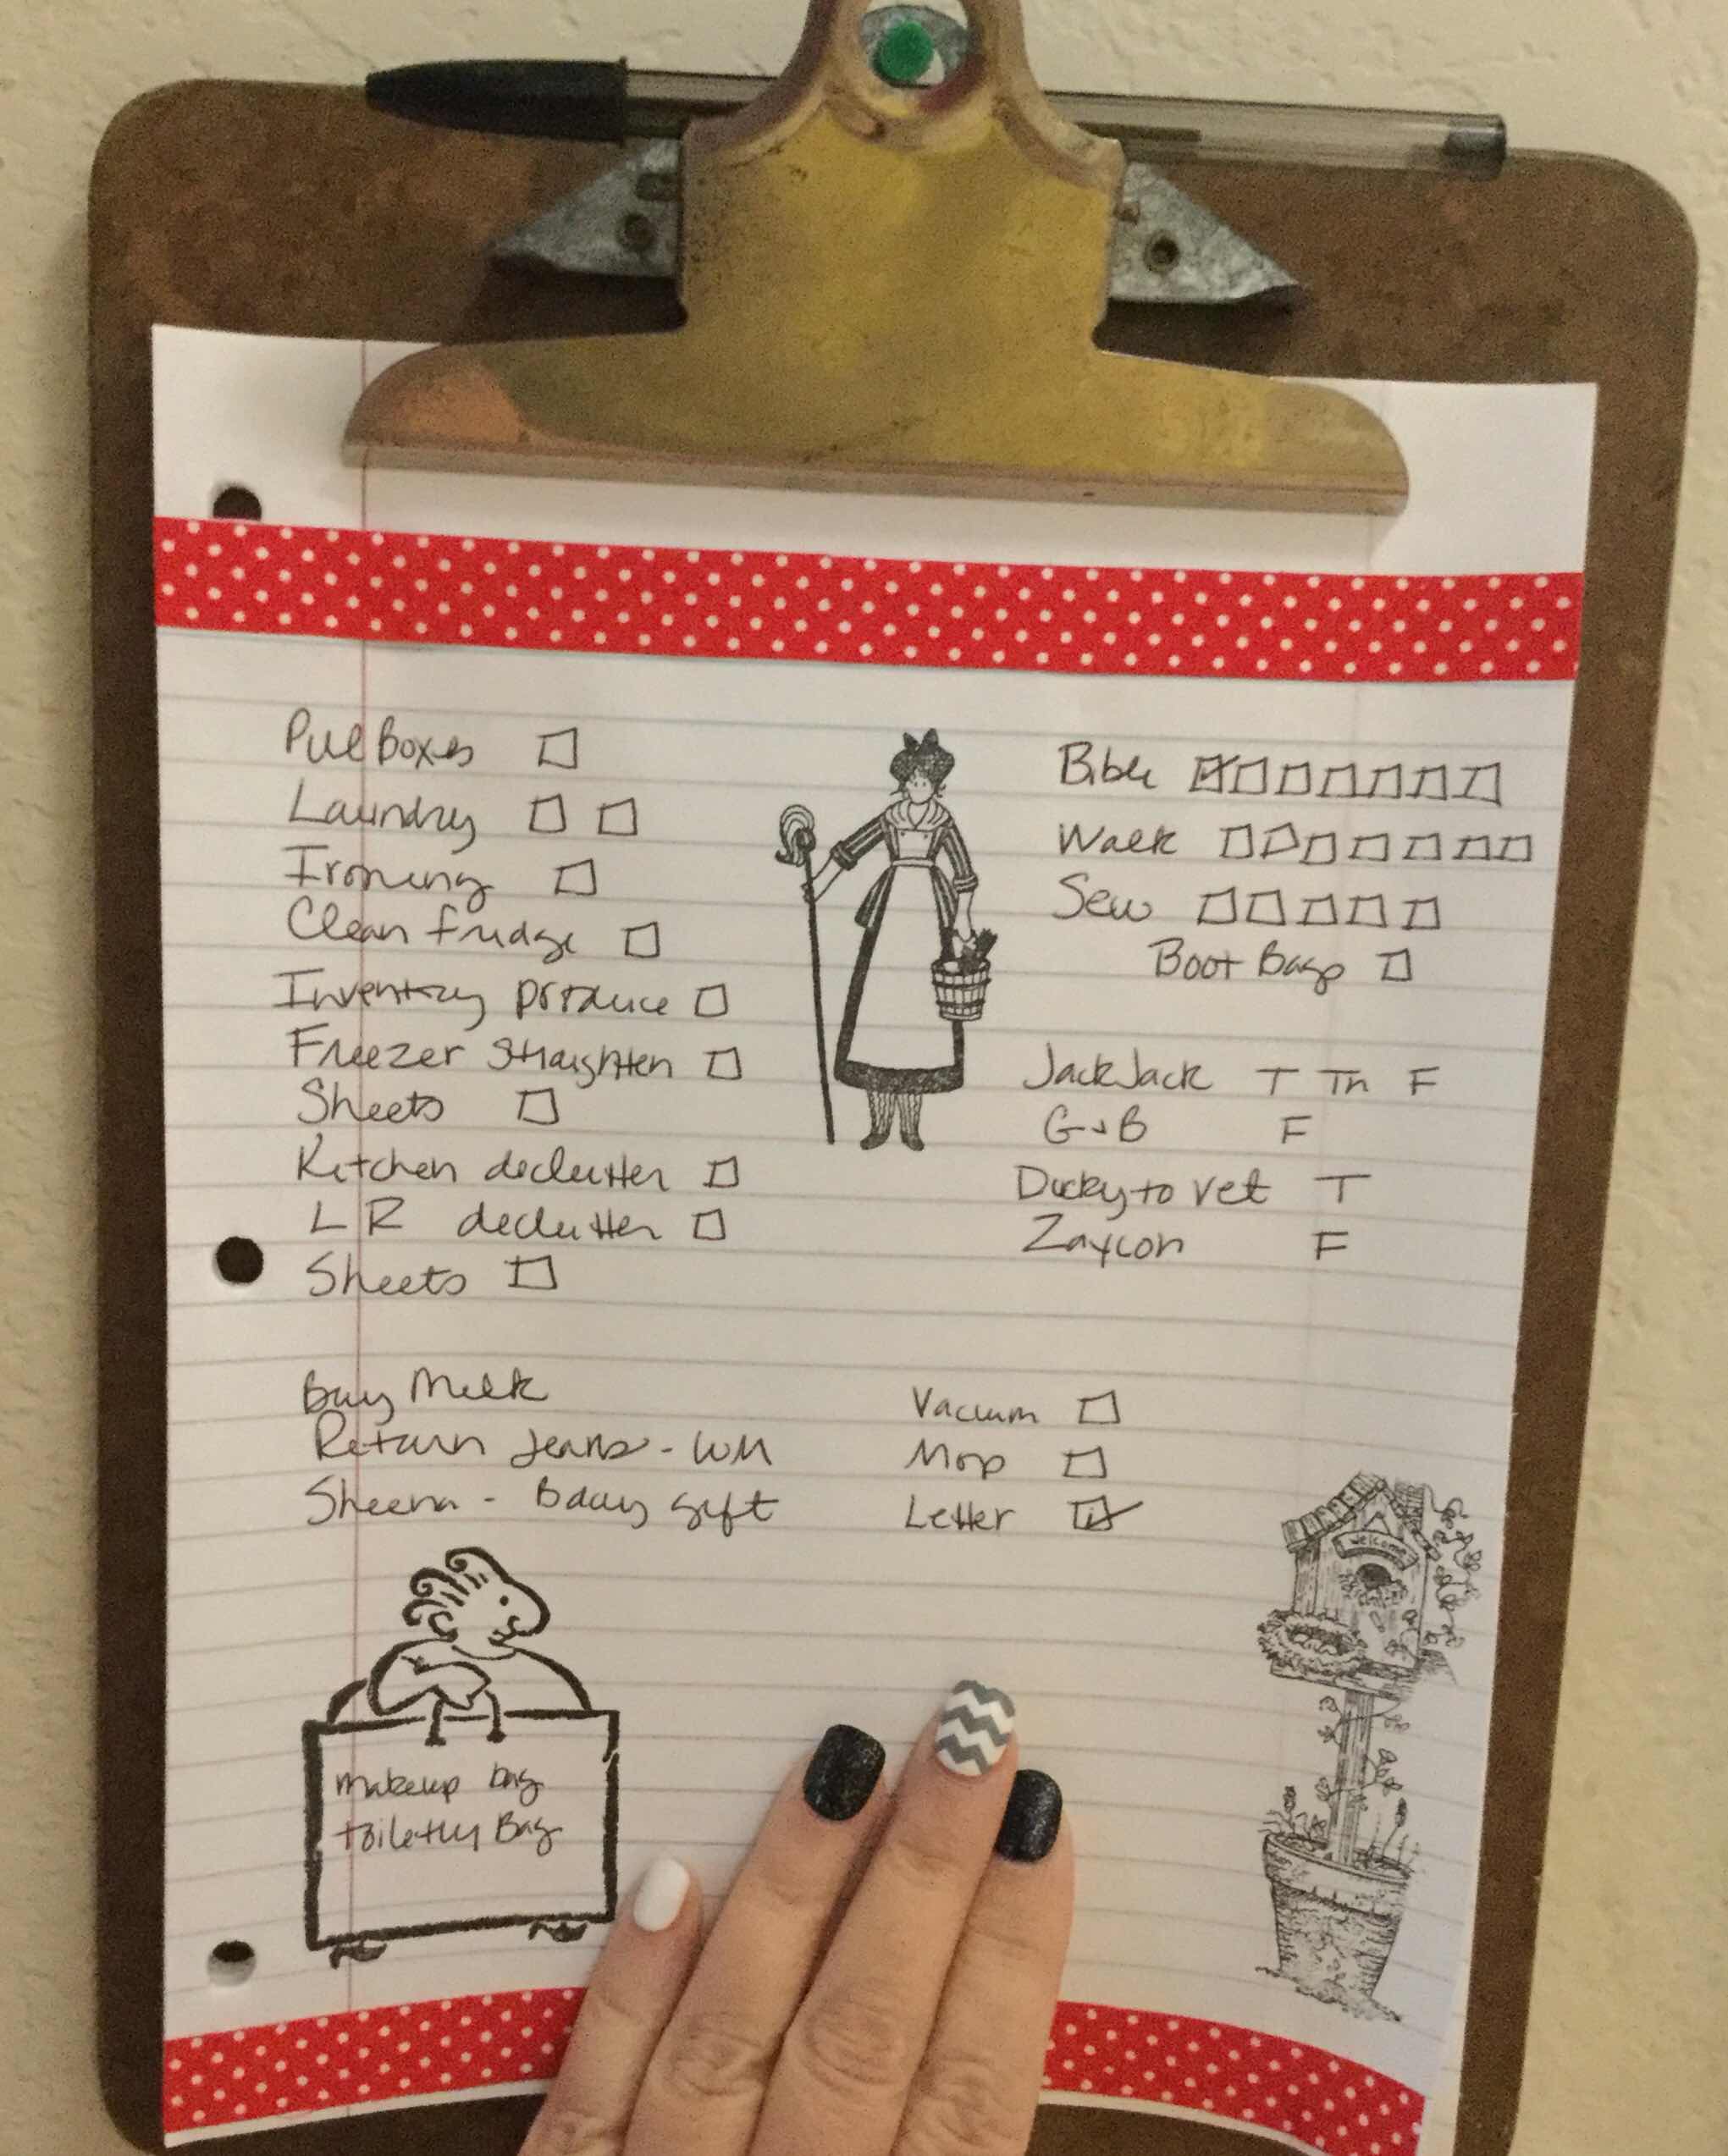 Pull Boxes
Laundry
Ironing
Clean fridge
Inventory produce
Freezer straighten
Sheets
Kitchen declutter
LR declutter
Sheets
Bible
Walk
Sew
Boot Bags
JackJack T Th F
G+B F
Ducky to vet T
Zaycon F
Buy Milk
Return Jeans - WM
Sheena - Bday gift
Vacuum
Mop
Letter
Welcome
makeup bag
toiletry Bag